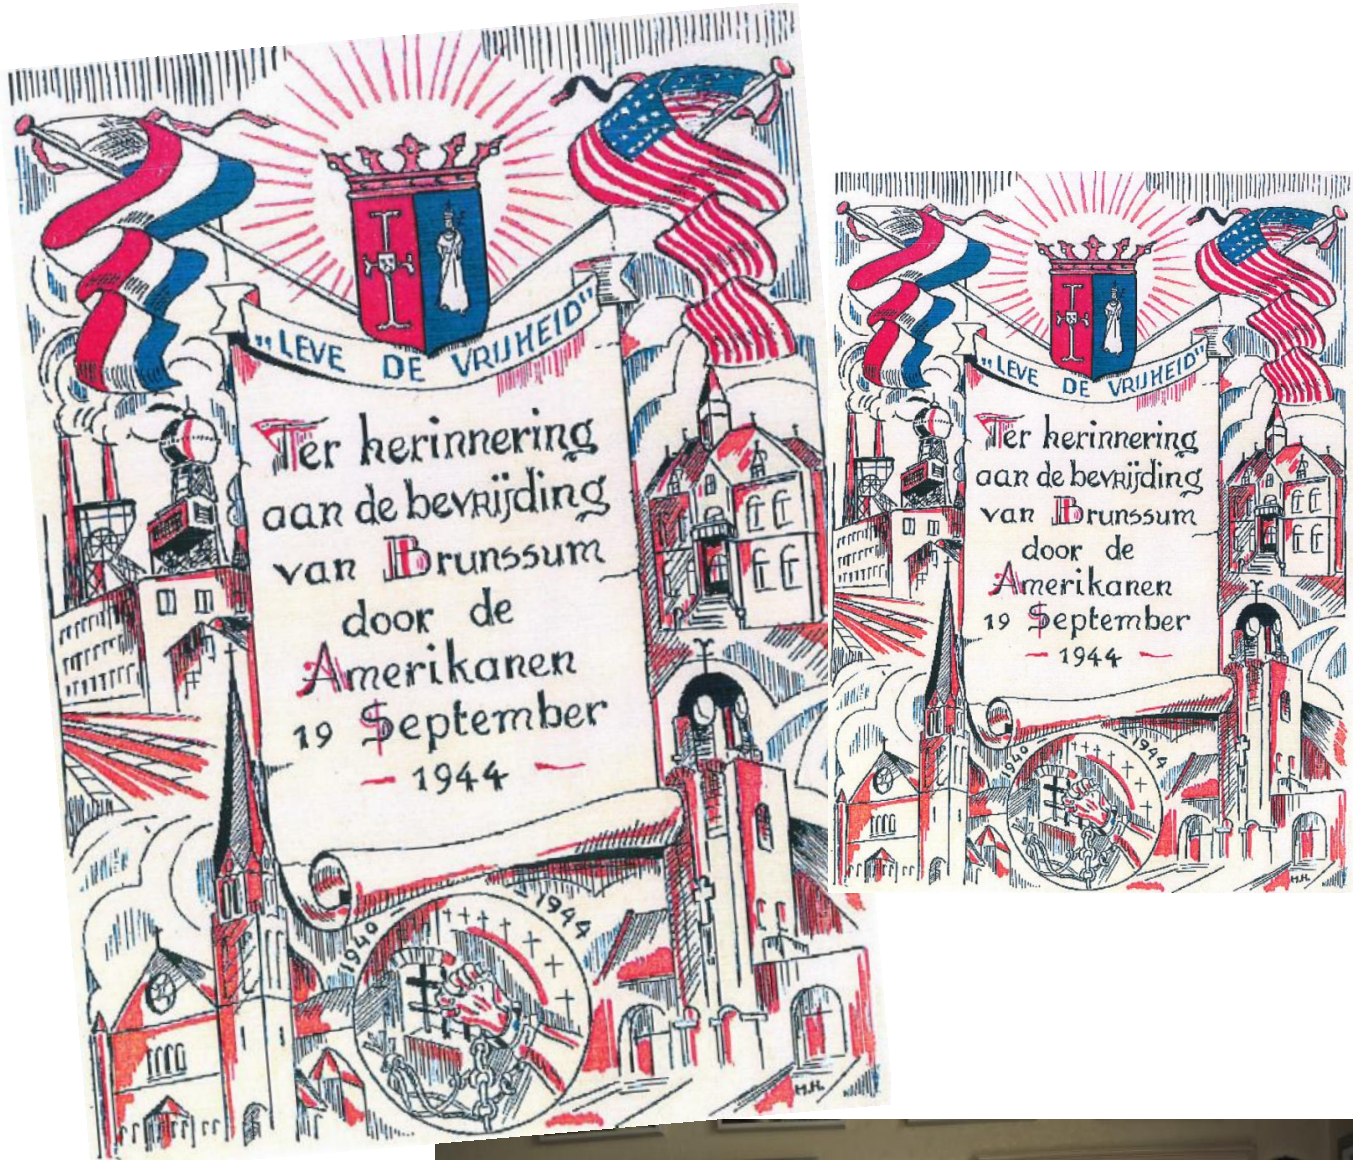 „LEVE DE VRIJHEID"
Ter herinnering
aan de bevrijding
van Brunssum
door de
Amerikanen
19 September
- 1944 -
1940 - - 1944
M.H.
„LEVE DE VRIJHEID"
Ter herinnering
aan de bevrijding
van Brunssum
door de
Amerikanen
19 September
- 1944 -
1940 - - 1944
M.H.